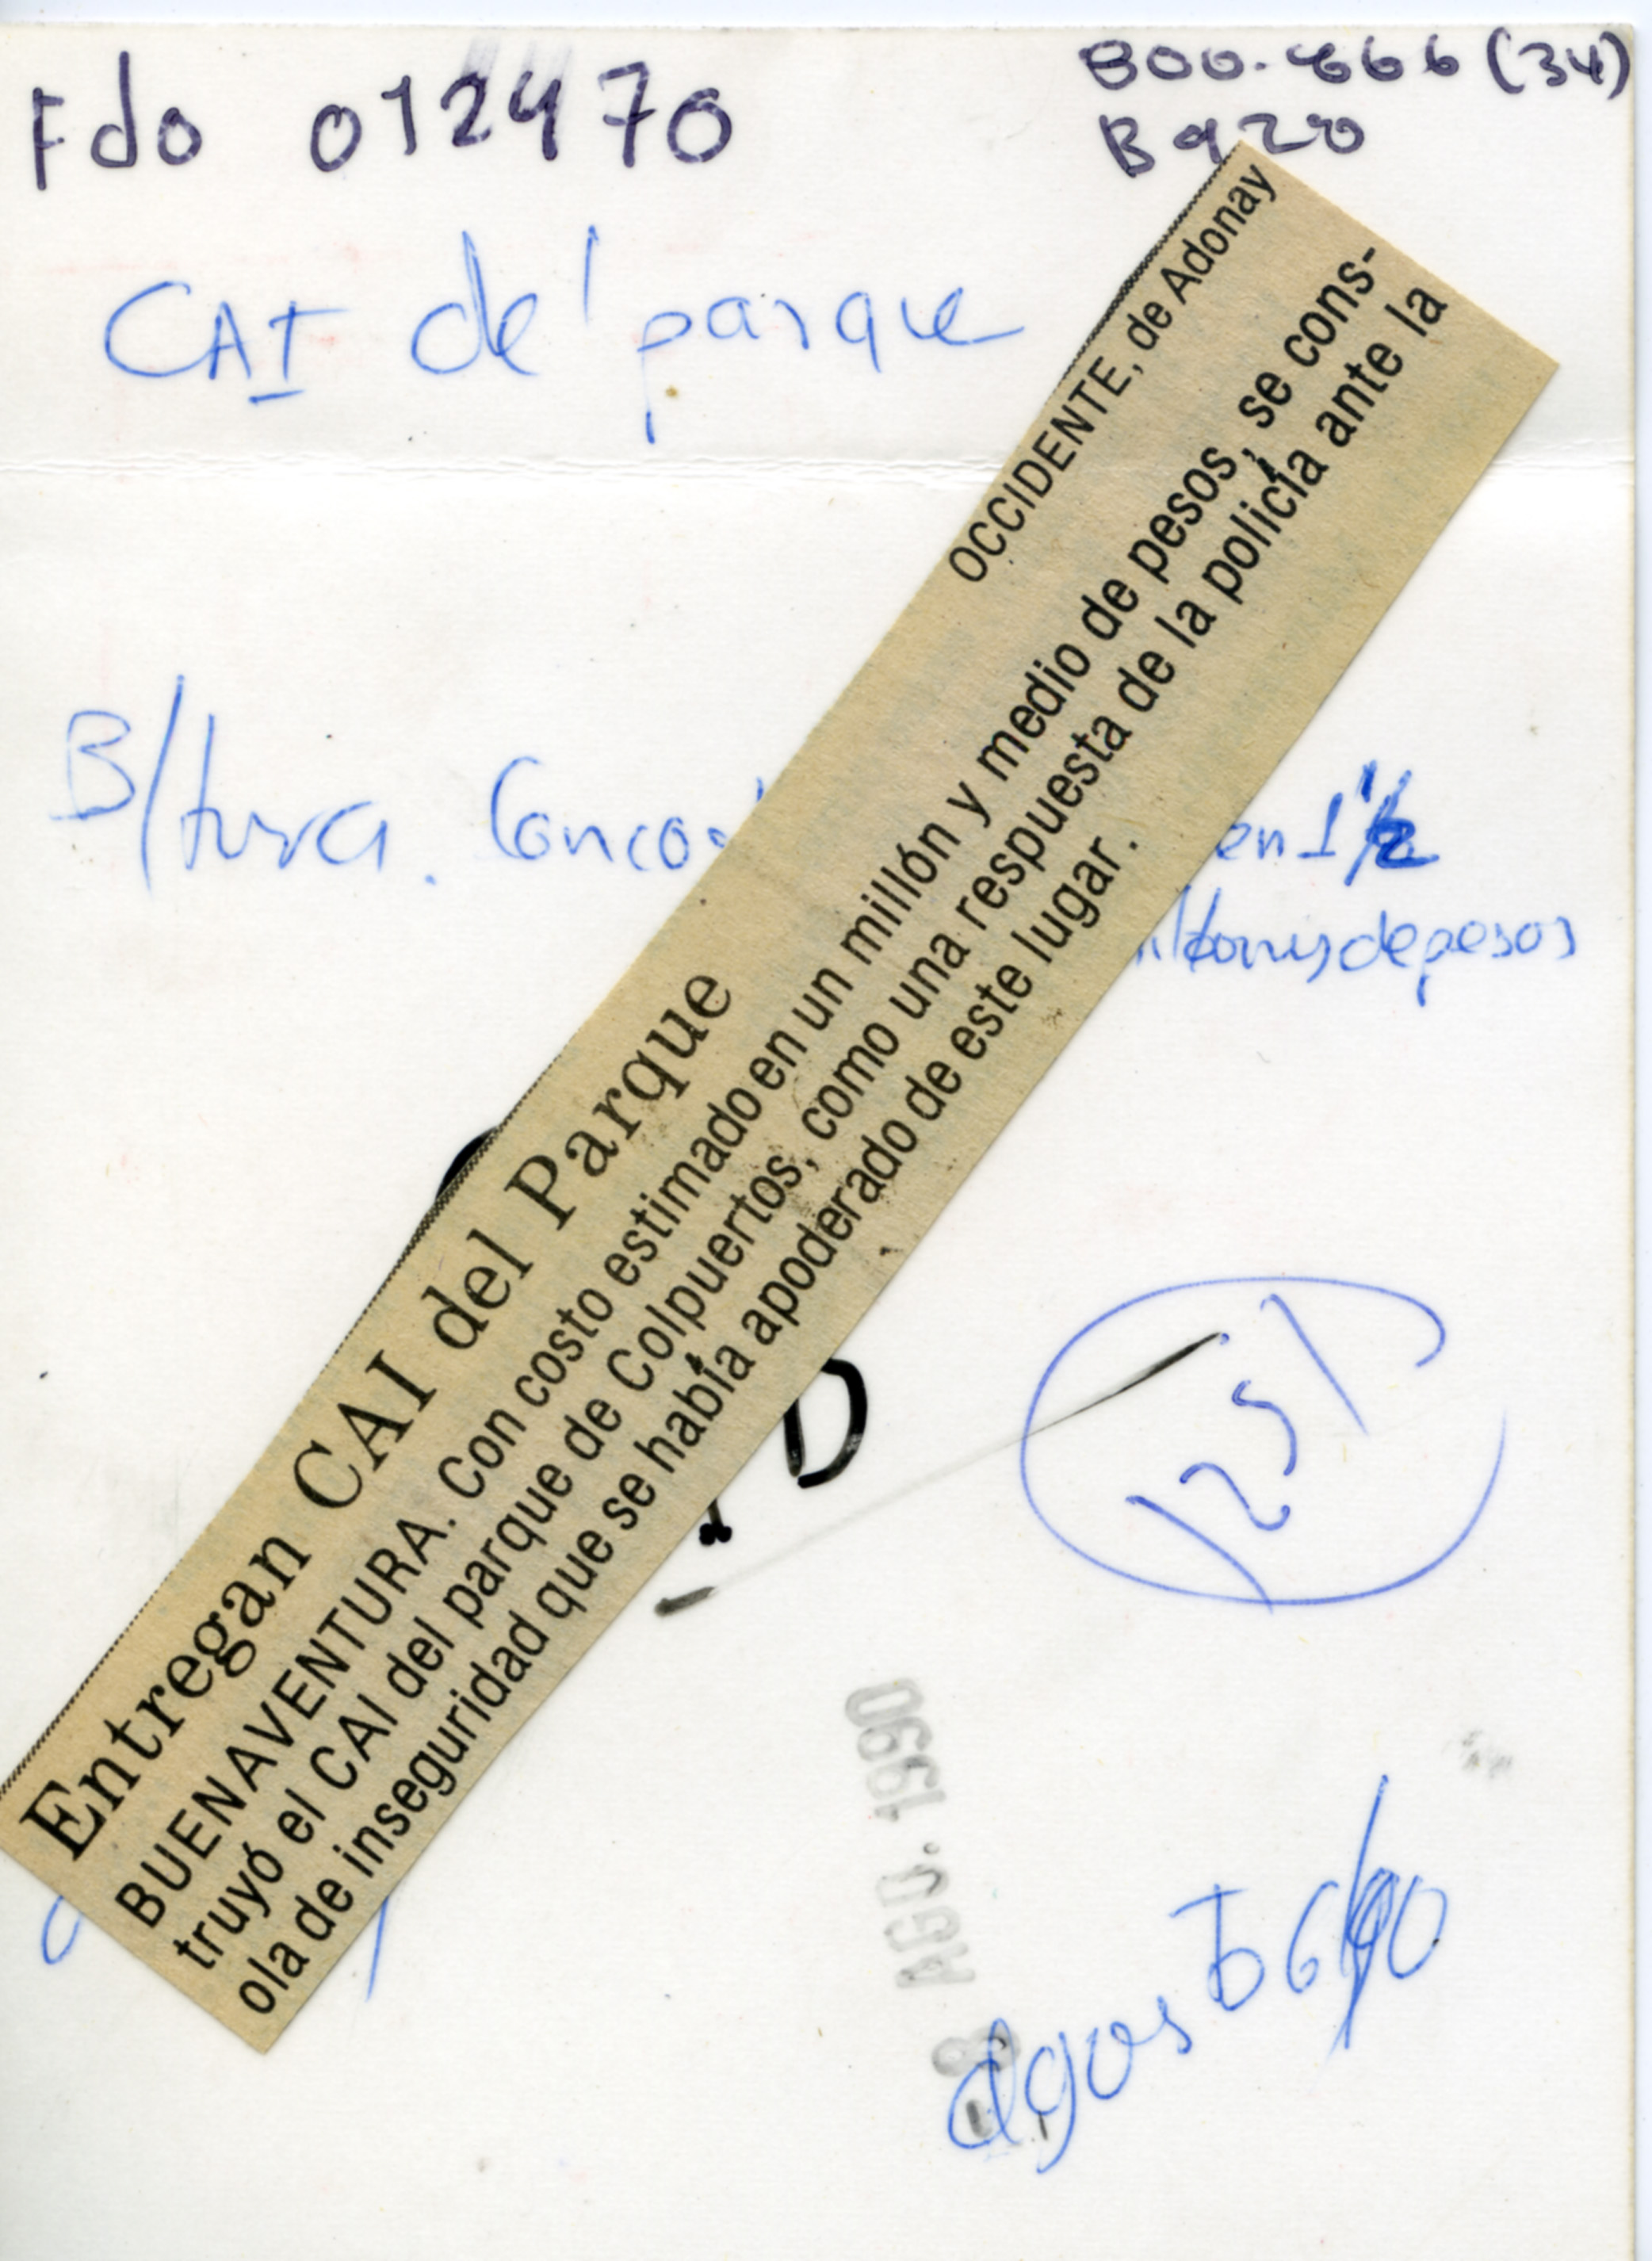 Fdo 012470
B00.466 (34)
B920
CAI del parque
Entregan CAI del Parque
OCCIDENTE, de Adonay
BUENAVENTURA. Con costo estimado en un millón y medio de pesos, se cons-
truyó el CAI del parque de Colpuertos, como una respuesta de la policía ante la
ola de inseguridad que se había apoderado de este lugar.
B/tura. Con co
en 1 1/2
de pesos
D
1251
AGO. 1990
agosto 6/90